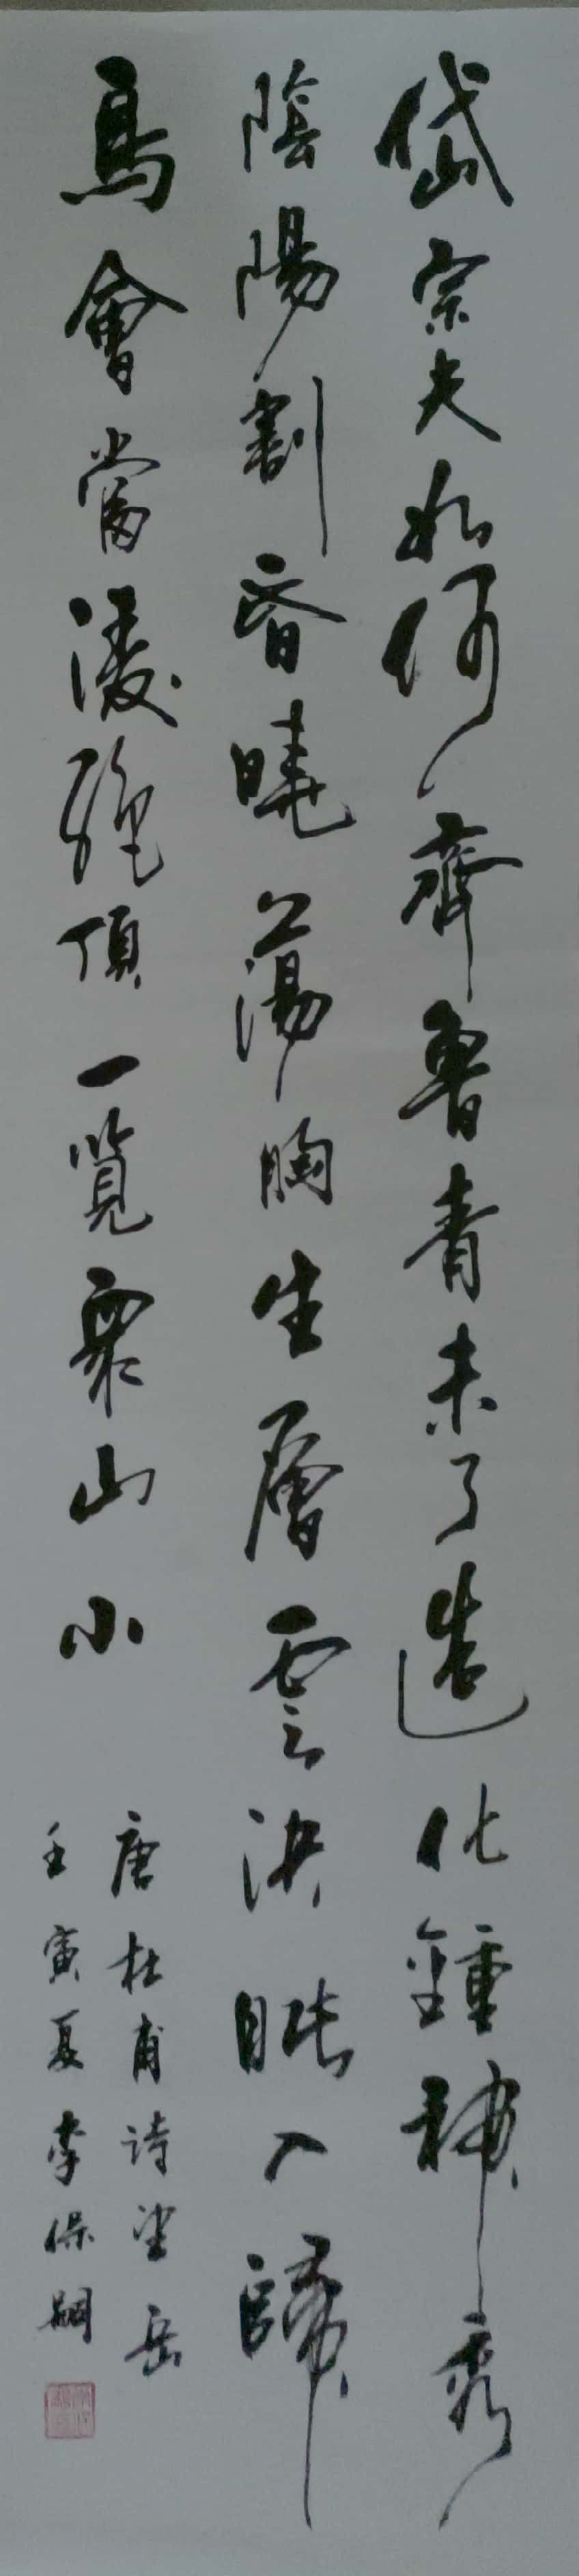 岱宗夫如何齊魯青未了造化鍾神秀
陰陽割昏曉蕩胸生層雲決眥入歸
鳥會當凌絕頂一覽眾山小
唐杜甫诗望岳
壬寅夏李保嗣